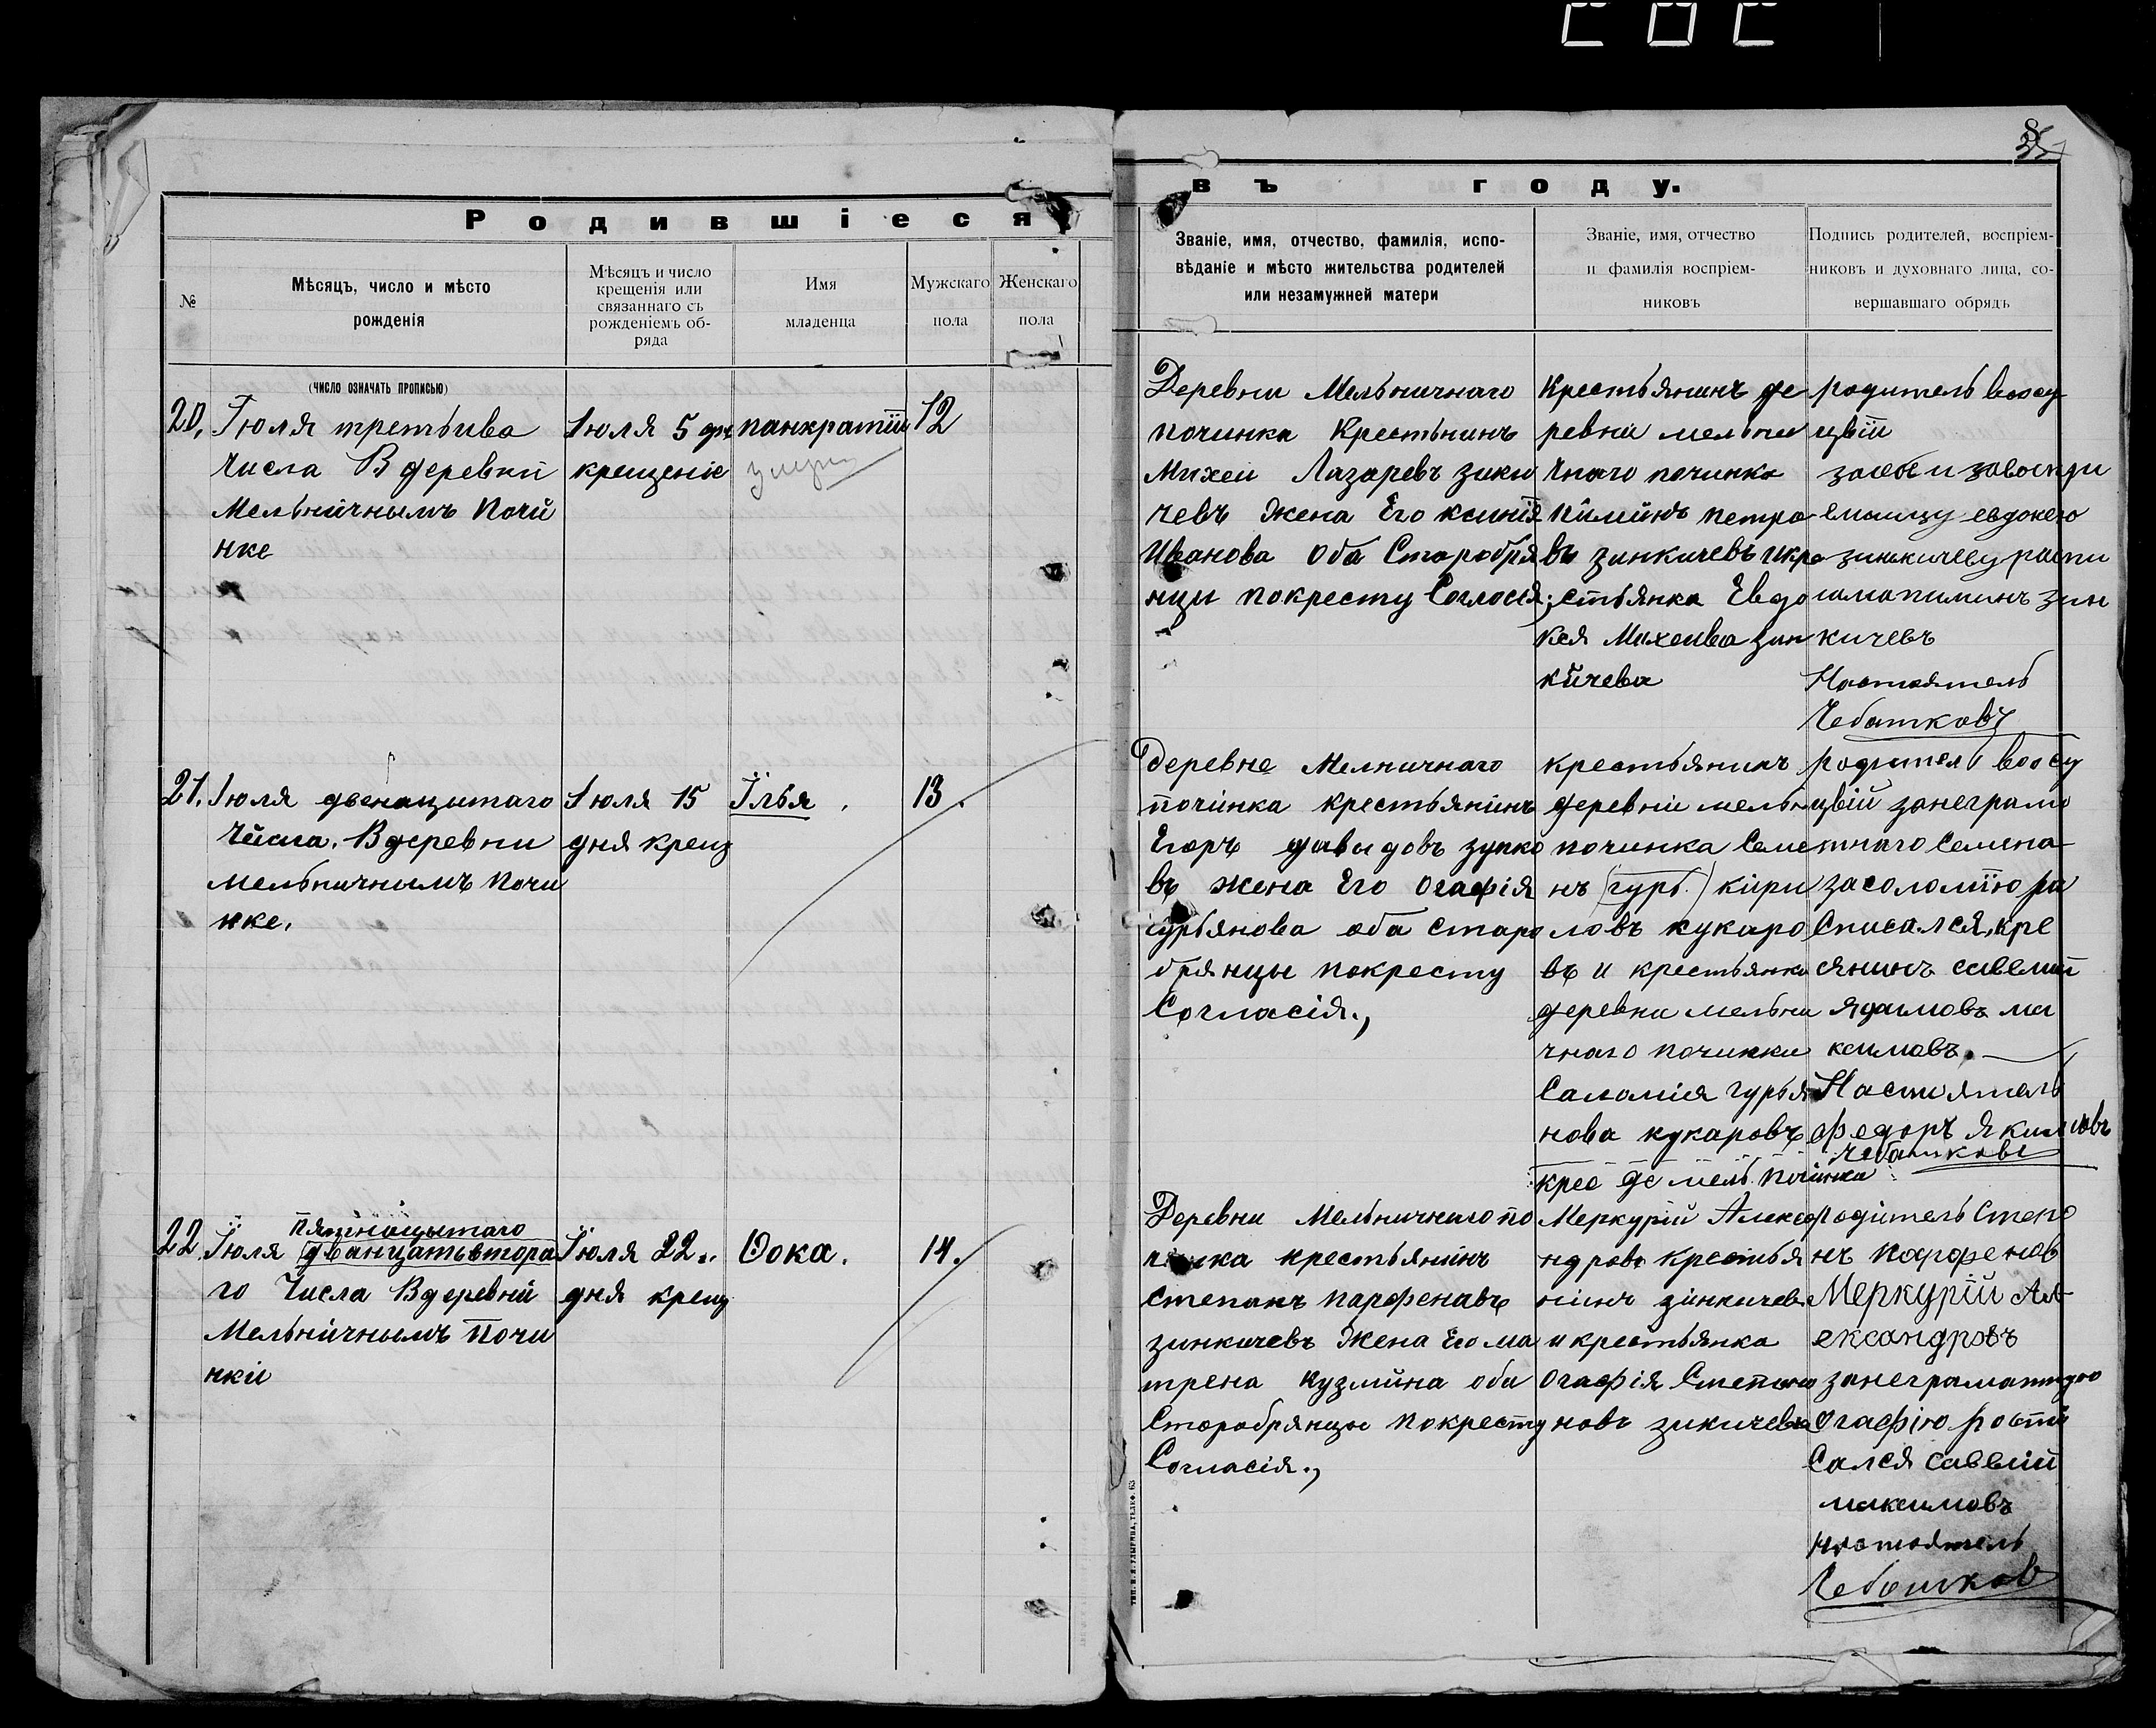 35
Родившіеся
въ году.
№
Мѣсяцъ, число и мѣсто
рожденія
Мѣсяцъ и число
крещенія или
связаннаго съ
рожденіемъ об-
ряда
Имя
младенца
Мужскаго
пола
Женскаго
пола
Званіе, имя, отчество, фамилія, испо-
вѣданіе и мѣсто жительства родителей
или незамужней матери
Званіе, имя, отчество
и фамилія воспріем-
никовъ
Подпись родителей, воспріем-
никовъ и духовнаго лица, со-
вершавшаго обрядъ
(число означать прописью)
20.
Іюля третьива
Числа В деревни
Мельничнымъ Почи
нке
Іюля 5 дн
крещеніе
панкратіи
12
Деревни Мельничнаго
починка Крестьнинъ
Михеи Лазаревъ зики
чевъ Жена Его ксинія
Иванова Оба Старобря
нцы покресту Согласия;
Крестьянинъ де
ревни мельни
чнаго починка
пиминъ петро
въ зинкичевъ икре
стьянка Евдо
кея Михеива зин
кичева
родитель
цвіи
евдокею
зинкичеву распи
пиминъ зин
кичевъ
Настоятель
Чебатковъ
21.
Іюля двенацитаго
Числа. В деревни
мельничнымъ почи
нке.
Іюля 15
дня крещ
Ілья.
13.
Деревне Мелничнаго
починка крестьянинъ
Егоръ давидовъ зупко
въ жена Его Огафія
гурьянова оба старо
брянцы покресту
Согласія.,
крестьянинъ
деревни мельн
починка Семе
нъ (гурь.) кири
ловъ кукаро
въ и крестьянка
деревни мельни
чнаго починки
Саломія гурья
нова кукаровъ
родител
цвій занеграмо
тнаго Семина
засоломію ра
списался, кре
сянинъ савелий
ядамовъ ма
ксимовъ.
Настиятель
федоръ Якимовъ
Чебатковъ
22.
пятнацытаго
Іюля дванцатьвтора
го Числа В деревни
Мельничнымъ Почи
нки
Іюля 22.
дня крещ
Ѳока.
14.
Деревни Мельничнаго по
чинка крестьянинъ
степанъ парфенавъ
зинкичевъ Жена Его ма
трена кузмина оба
Старобрянцы покресту
Согласія.,
крес де мель. починка
Меркурій Алекса
ндровъ крестья
нинъ зинкичевъ
и крестьянка
Огафія Степано
новъ зикичева
Родитель Степа
нъ Парфенов
Меркурій Ал
ександровъ
занеграматную
Огафію роспи
сался Савелий
максимовъ
настоятель
Чебатков